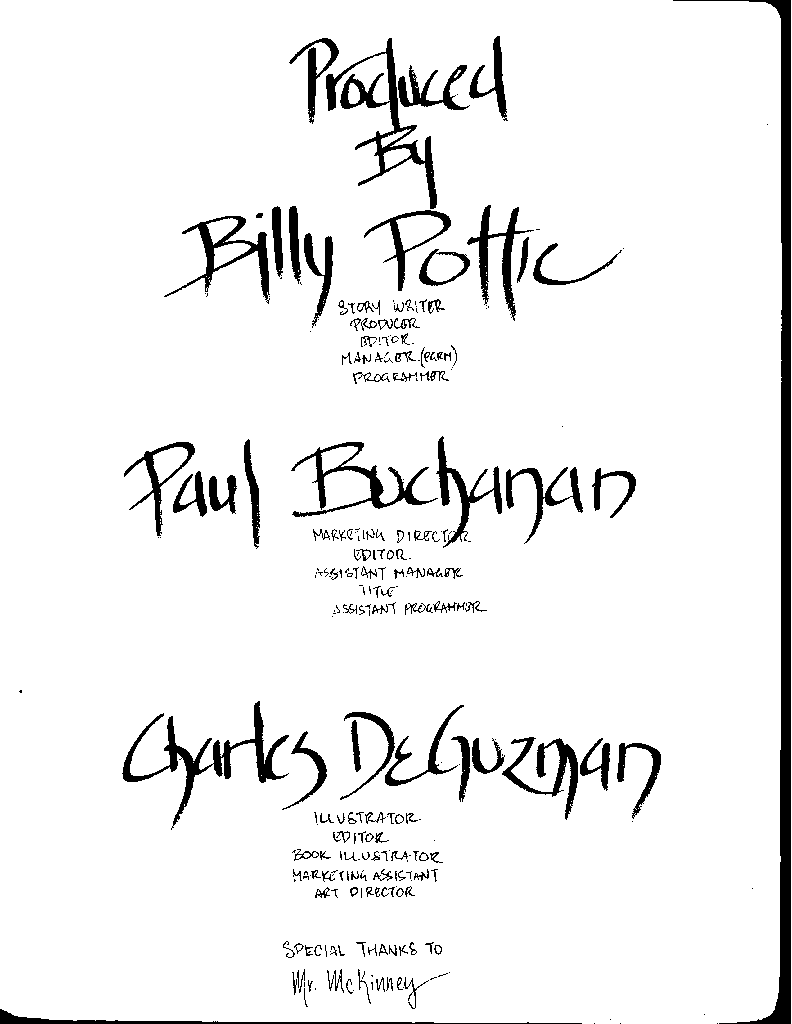 Produced
By
Billy Pottic
STORY WRITER
PRODUCER
EDITOR.
MANAGER.(PGRM)
PROGRAMMER
Paul Buchanan
MARKETING DIRECTOR
EDITOR.
ASSISTANT MANAGER
TITLE
ASSISTANT PROGRAMMER
Charles DeGuzman
ILLUSTRATOR.
EDITOR
BOOK ILLUSTRATOR
MARKETING ASSISTANT
ART DIRECTOR
SPECIAL THANKS TO
Mr. McKinney